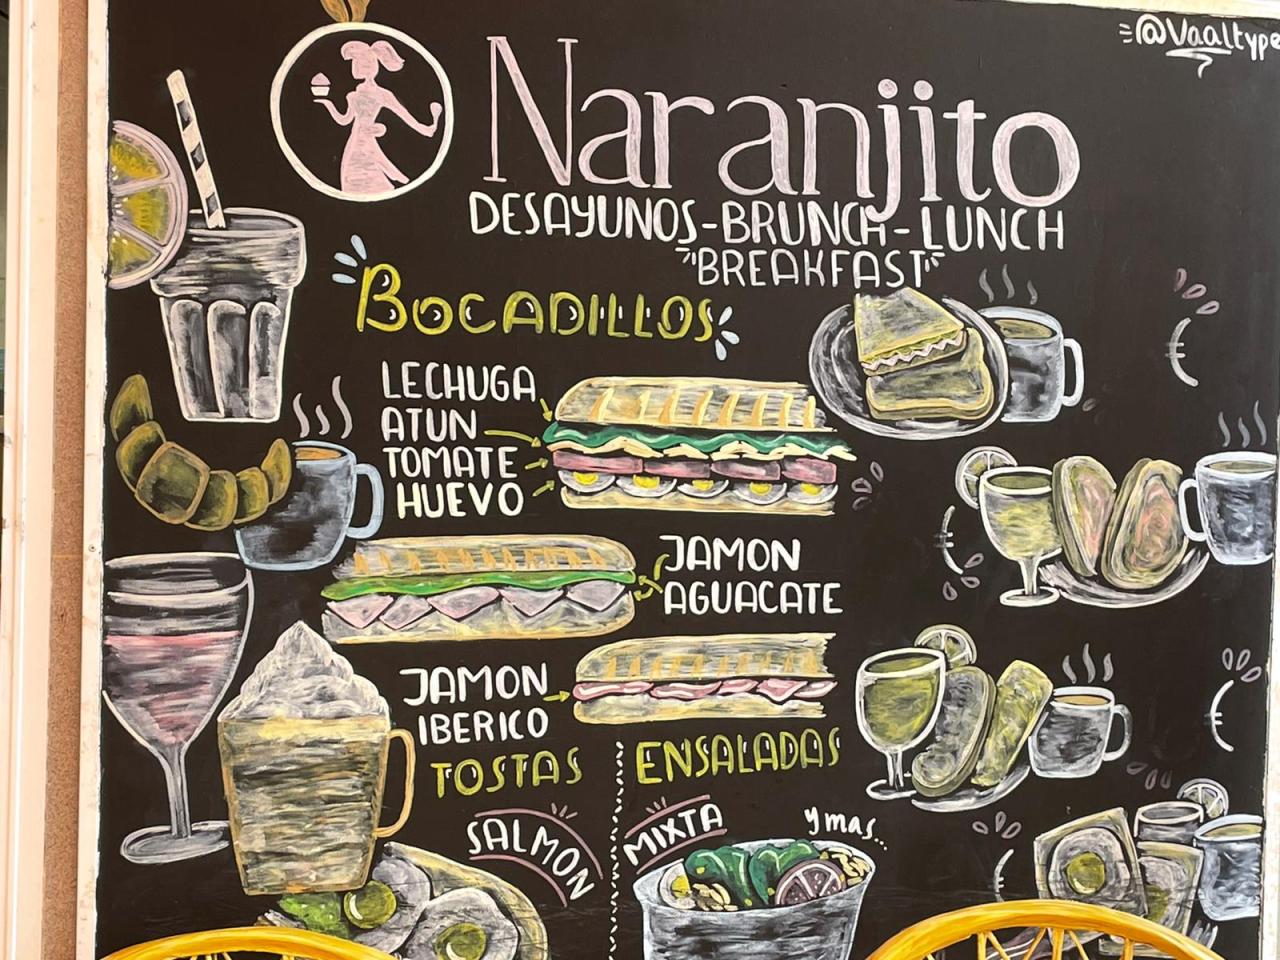 @Vaaltype
Naranjito
DESAYUNOS-BRUNCH-LUNCH
"BREAKFAST"
BOCADILLOS
LECHUGA
ATUN
TOMATE
HUEVO
JAMON
AGUACATE
JAMON
IBERICO
TOSTAS
SALMON
ENSALADAS
MIXTA
y mas..
€
€
€